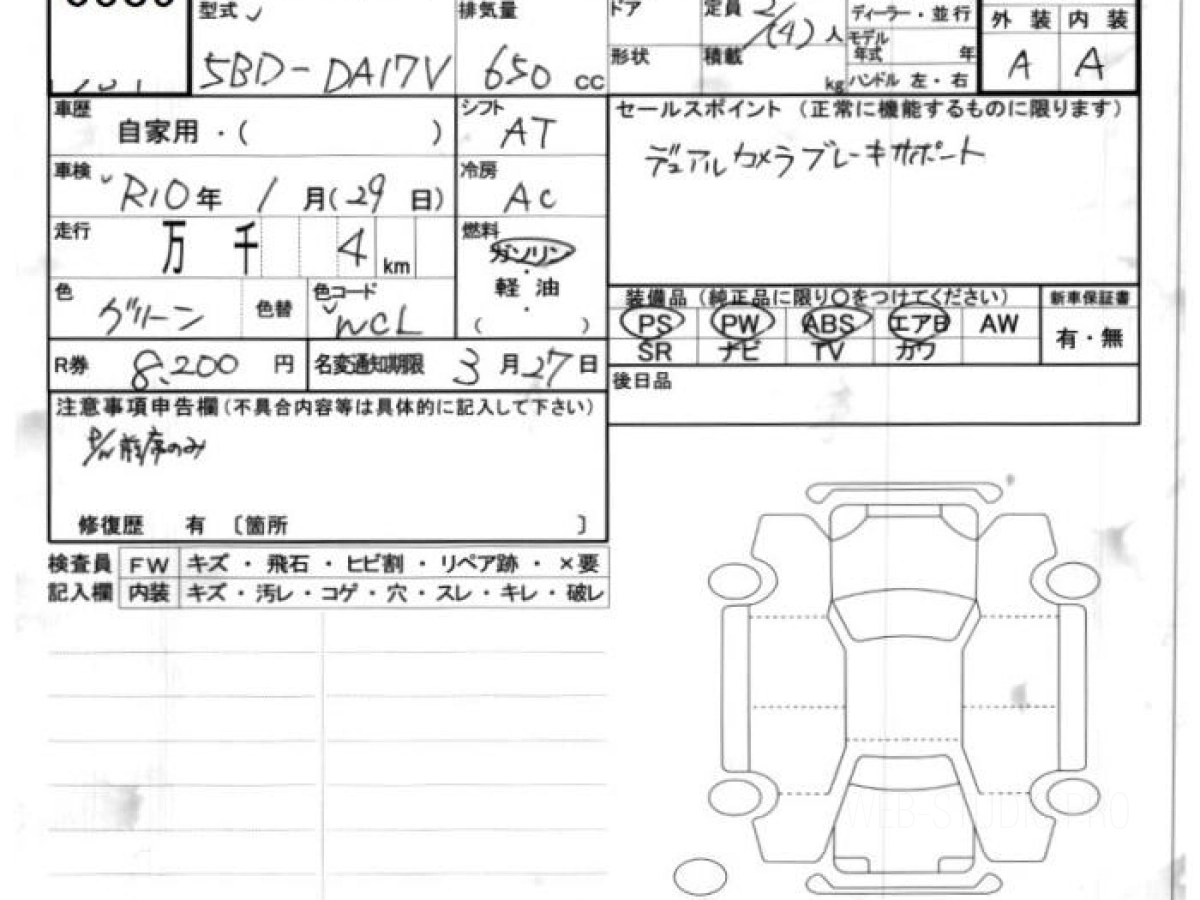 型式
5BD-DA17V
排気量
650 cc
ドア
形状
定員 2/(4) 人
積載 kg
ディーラー・並行
モデル年式 年
ハンドル 左・右
外装 内装
A A
車歴 自家用・( )
シフト AT
車検 R10年 1月(29日)
冷房 AC
走行 万 千 4 km
燃料 ガソリン
・
軽油
( )
色 グリーン
色替
色コード WCL
R券 8,200 円
名変通知期限 3月27日
注意事項申告欄(不具合内容等は具体的に記入して下さい)
P/W前席のみ
修復歴 有 〔箇所 〕
セールスポイント(正常に機能するものに限ります)
デュアルカメラブレーキサポート
装備品(純正品に限り○をつけてください)
新車保証書
PS PW ABS エアB AW
SR ナビ TV カワ
有・無
後日品
検査員 FW キズ・飛石・ヒビ割・リペア跡・×要
記入欄 内装 キズ・汚レ・コゲ・穴・スレ・キレ・破レ
WEB-STUDIO PRO